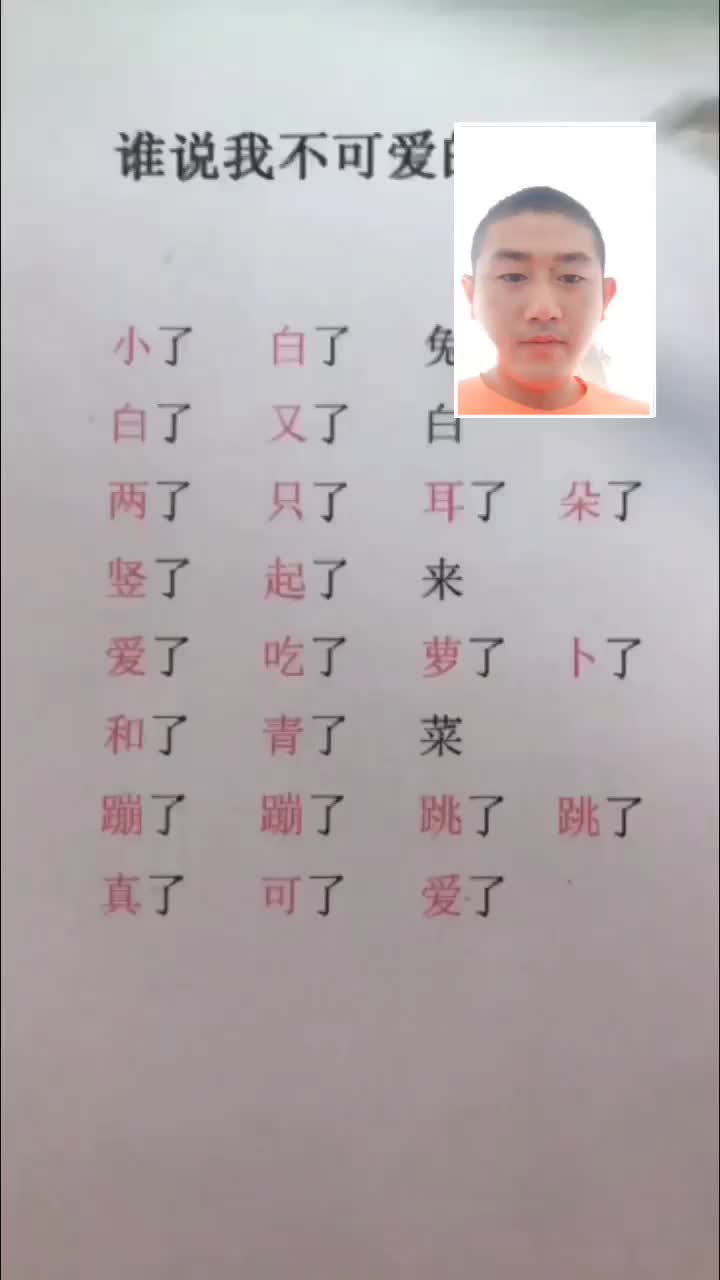 谁说我不可爱的
小了 白了 兔
白了 又了 白
两了 只了 耳了 朵了
竖了 起了 来
爱了 吃了 萝了 卜了
和了 青了 菜
蹦了 蹦了 跳了 跳了
真了 可了 爱了